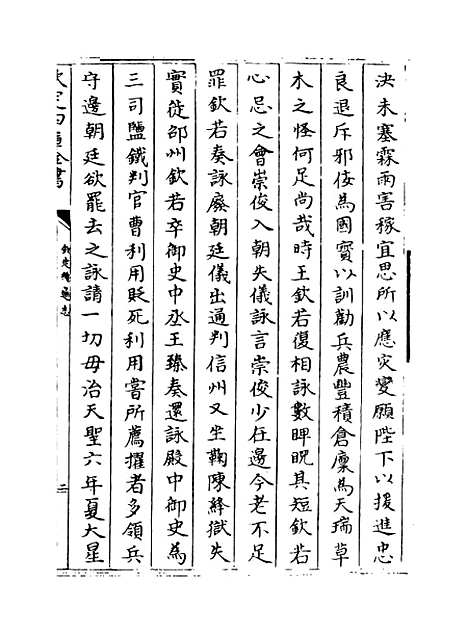 決未塞霖雨害稼宜思所以應灾變願陛下以援進忠
良退斥邪佞為國寳以訓勸兵農豐積倉廩為天瑞草
木之怪何足尚哉時王欽若復相詠數睥睨其短欽若
心忌之會崇俊入朝失儀詠言崇俊少在邊今老不足
罪欽若奏詠廢朝廷儀出通判信州又坐鞫陳絳獄失
實徙邵州欽若卒御史中丞王臻奏還詠殿中御史為
三司鹽鐵判官曹利用貶死利用嘗所薦擢者多領兵
守邊朝廷欲罷去之詠請一切毋治天聖六年夏大星
欽定四庫全書
欽定續通志
二